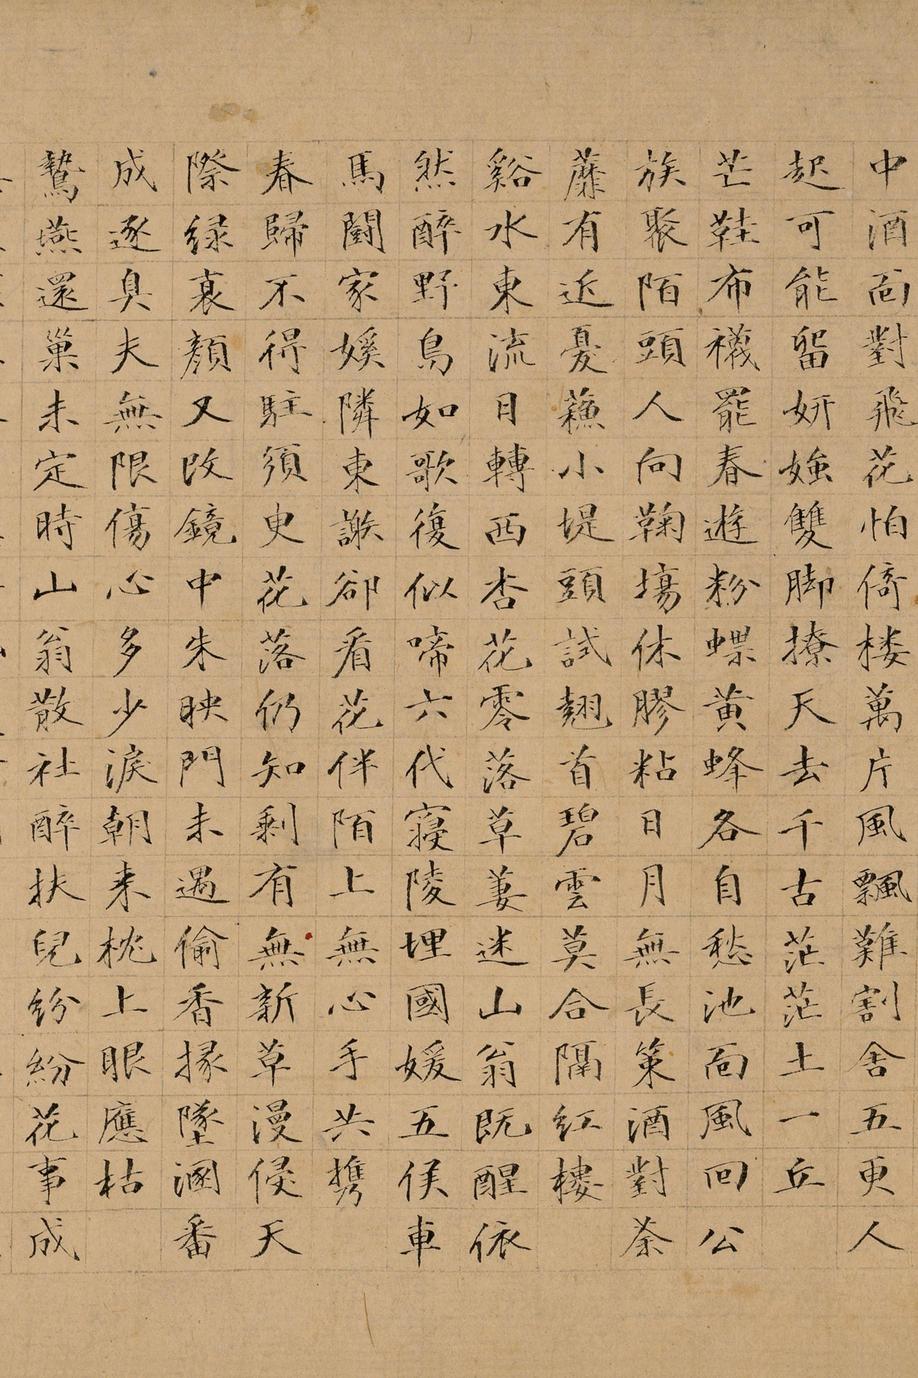 中酒面對飛花怕倚楼萬片風飄難割舍五更人
起可能留妍媸雙脚撩天去千古茫茫土一丘
芒鞋布襪罷春遊粉蝶黄蜂各自愁池面風回公
族聚陌頭人向鞠場休膠粘日月無長策酒對荼
蘼有近憂蘓小堤頭試翹首碧雲莫合隔紅樓
谿水東流日轉西杏花零落草萋迷山翁既醒依
然醉野鳥如歌復似啼六代寢陵埋國媛五侯車
馬鬪家㜎隣東謝卻看花伴陌上無心手共攜
春歸不得駐須臾花落仍知剩有無新草漫侵天
際緑衰顏又改鏡中朱映門未遇偷香掾墜溷番
成逐臭夫無限傷心多少淚朝来枕上眼應枯
鷙燕還巢未定時山翁散社醉扶兒紛紛花事成